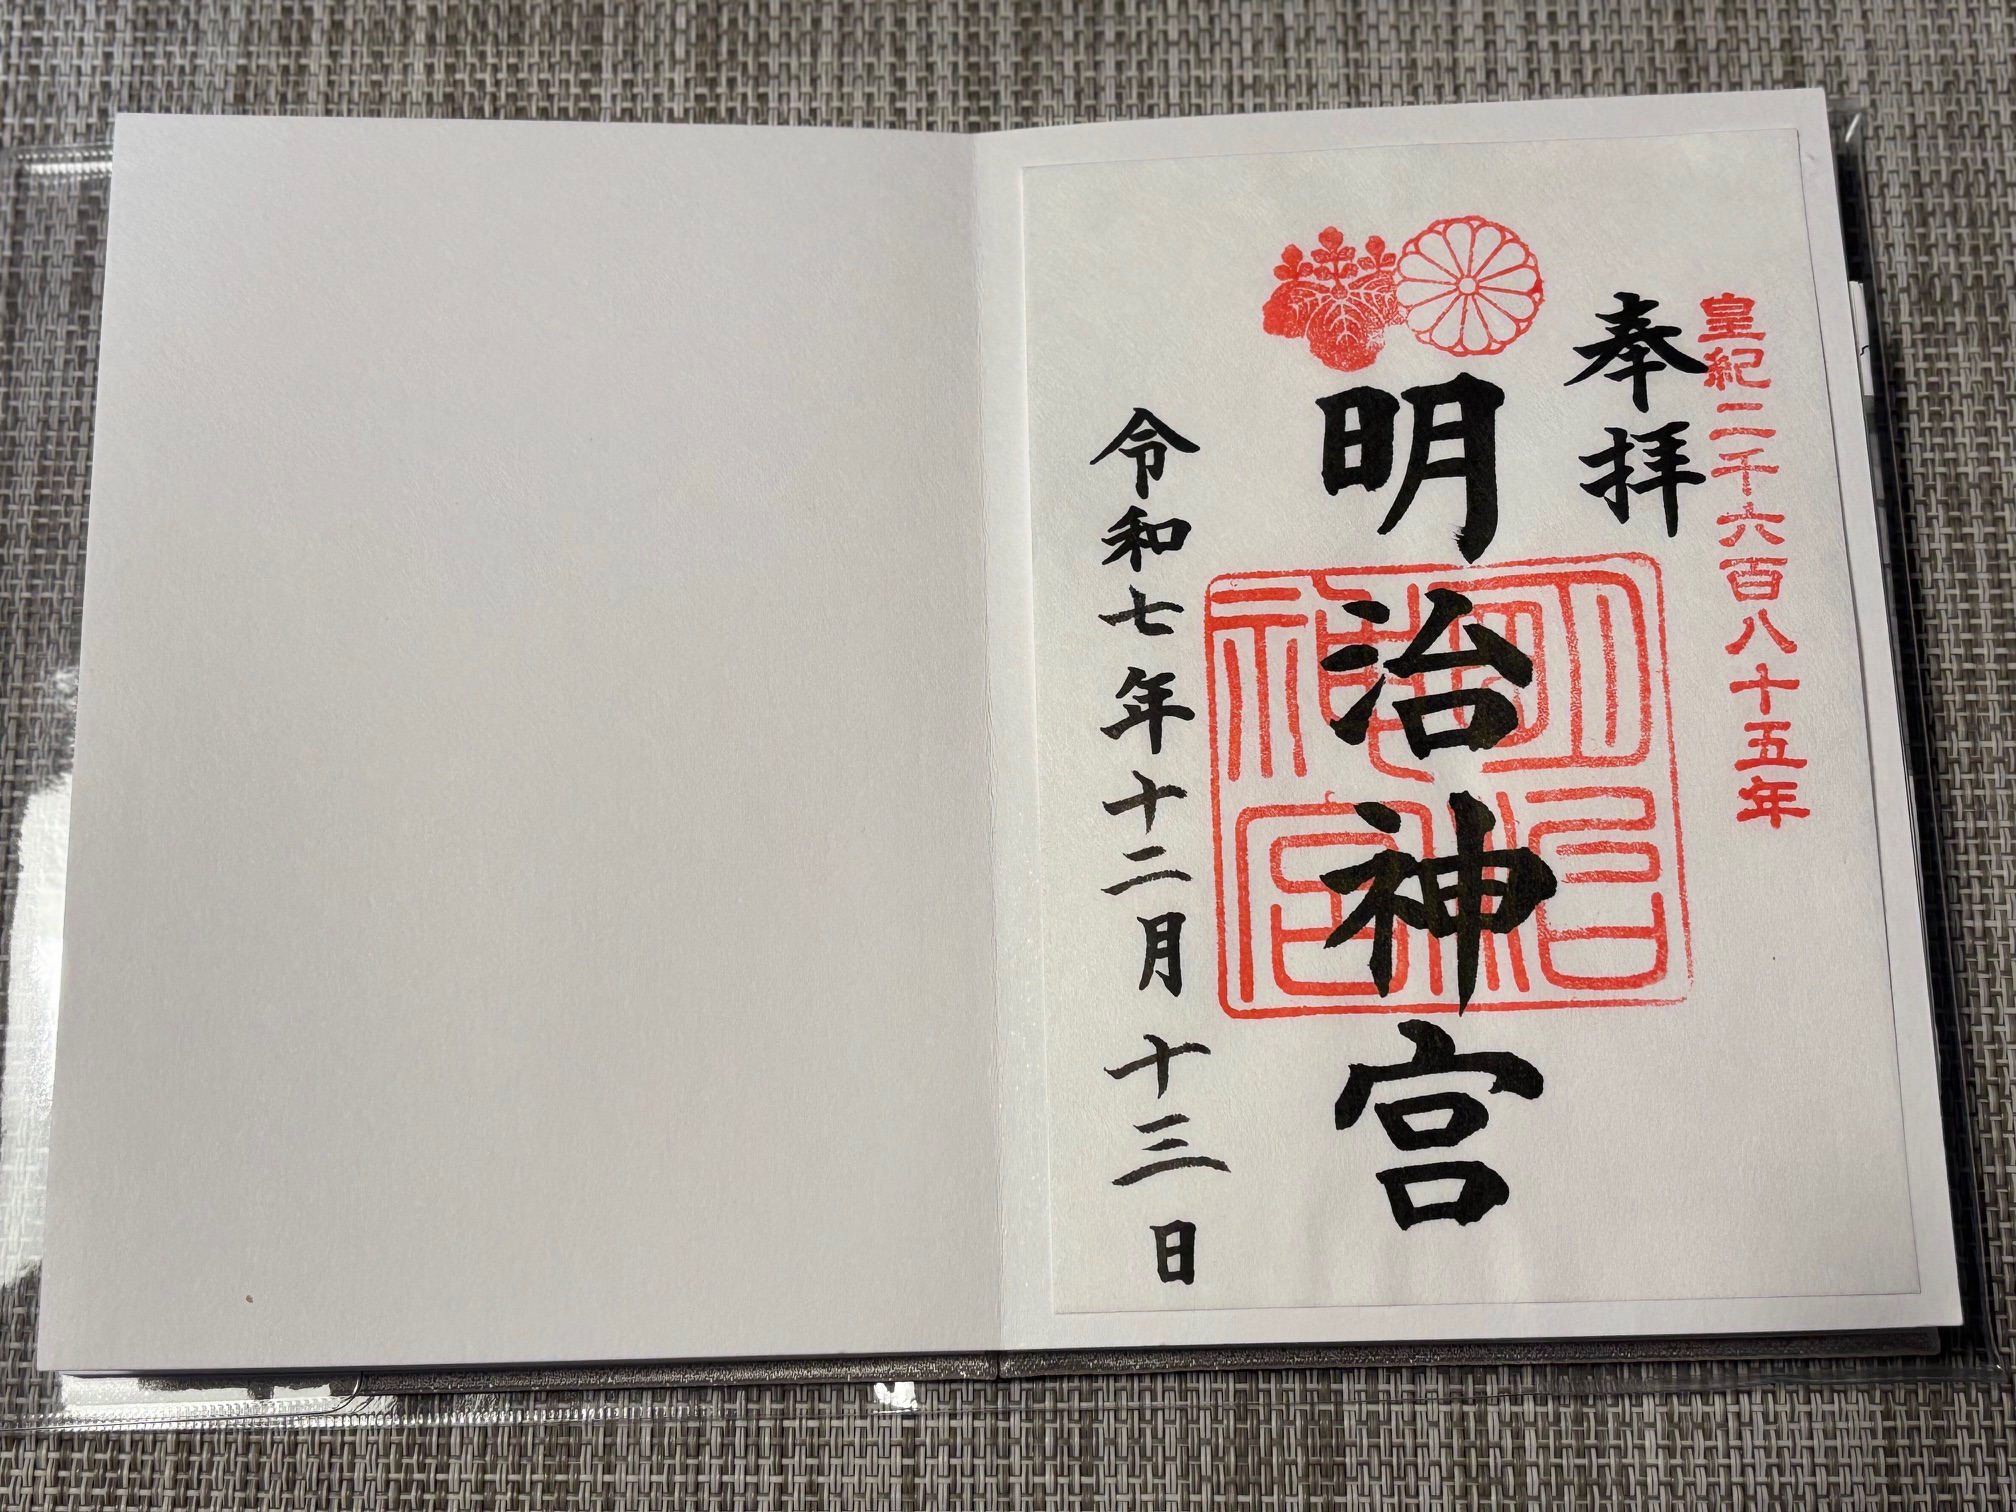 皇紀二千六百八十五年
奉拝
明治神宮
明治神宮
令和七年十二月十三日